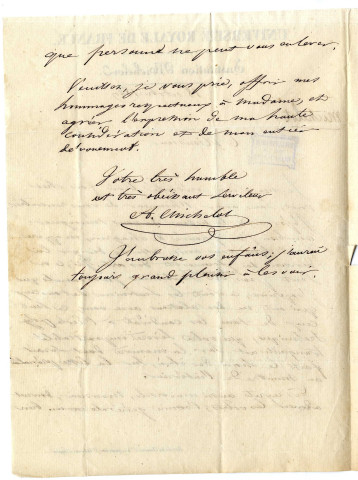 que personne ne peut vous enlever.
Veuillez, je vous prie, offrir mes
hommages respectueux à madame, et
agréer l'expression de ma haute
considération et de mon entier
dévouement.
Votre très humble
et très obéissant serviteur
A. Michelot
J'embrasse vos enfans; j'aurai
toujours grand plaisir à les voir.